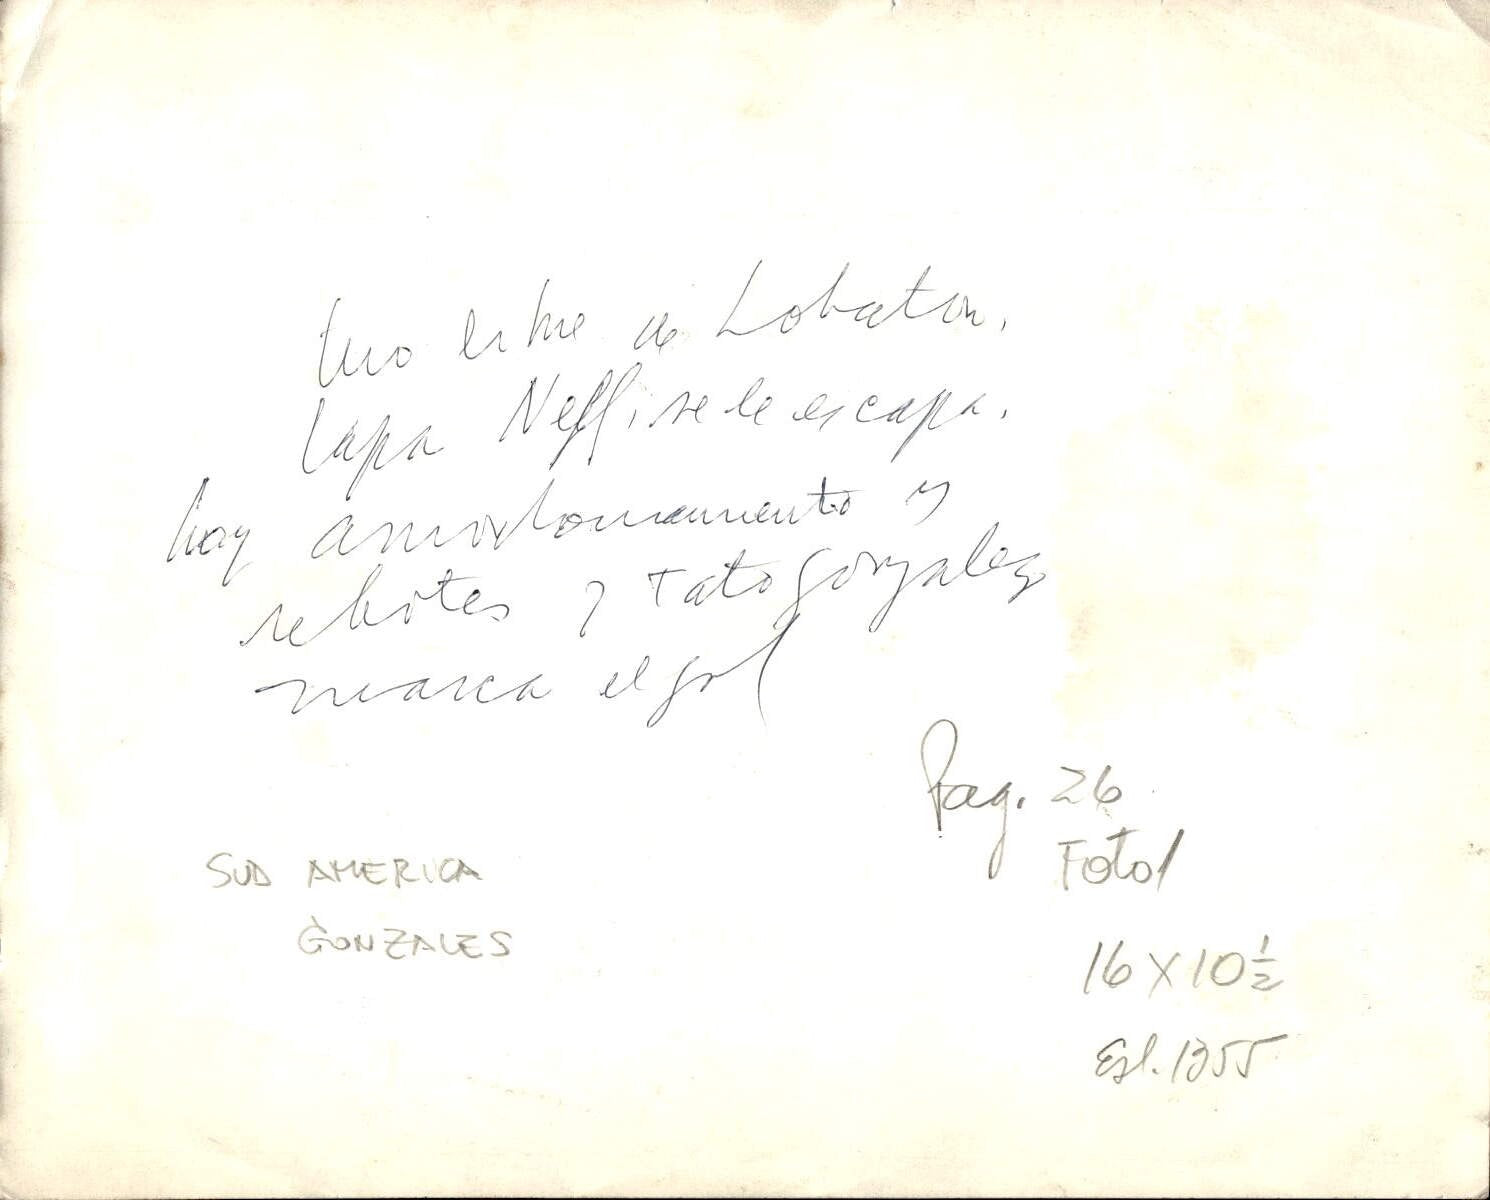 tiro libre de Lobaton.
tapa Neffi, se le escapa.
hay amontonamiento y
rebotes y Tato Gonzalez
marca el gol
Pag. 26
Foto 1
SUD AMERICA
GONZALES
16 x 10 1/2
Esl. 1355